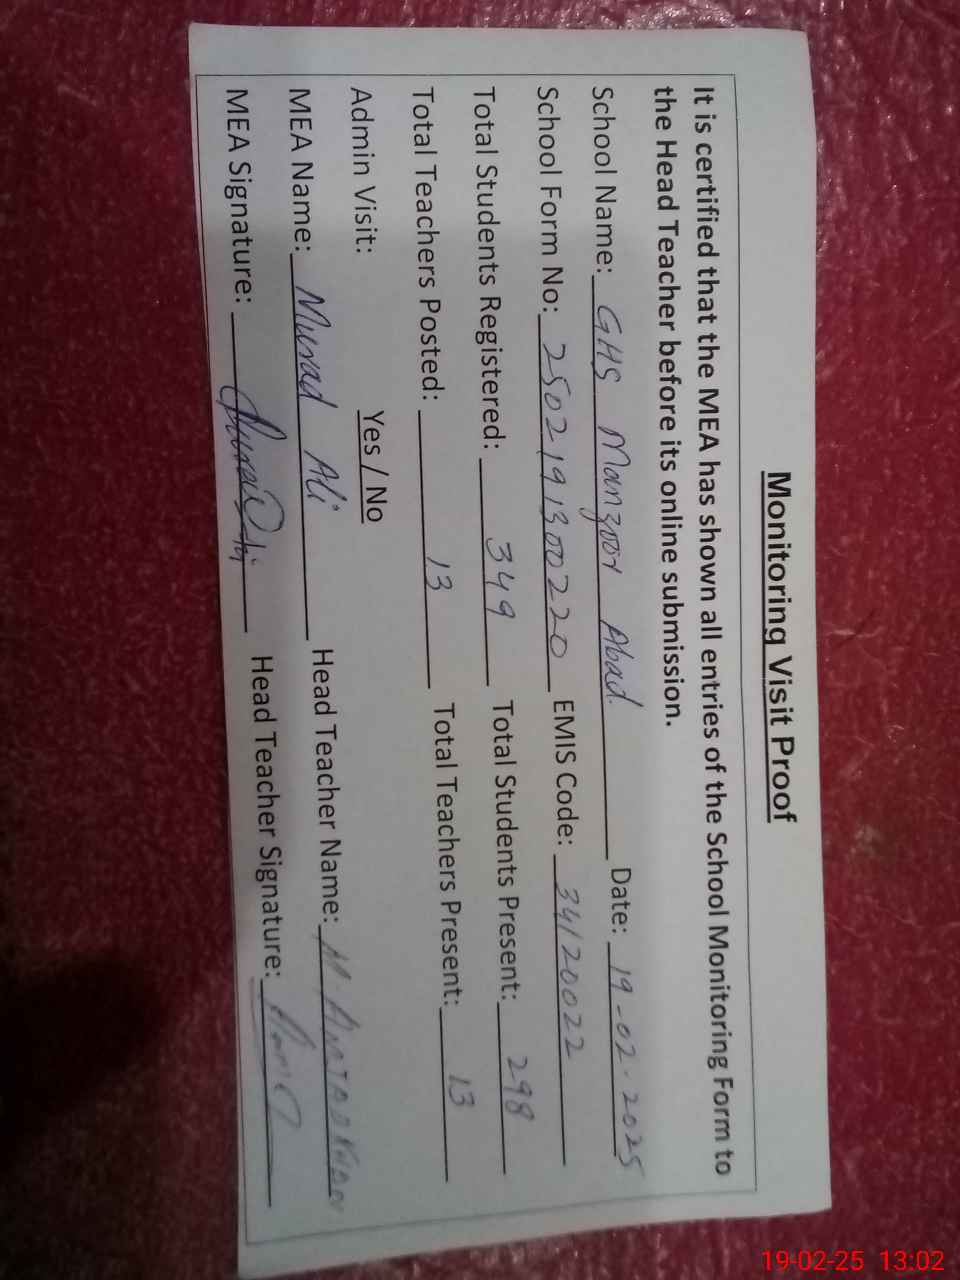 Monitoring Visit Proof
It is certified that the MEA has shown all entries of the School Monitoring Form to
the Head Teacher before its online submission.
School Name: GHS Manzoor Abad Date: 19-02-2025
School Form No: 2502191300220 EMIS Code: 34120022
Total Students Registered: 349 Total Students Present: 298
Total Teachers Posted: 13 Total Teachers Present: 13
Admin Visit: Yes / No
MEA Name: Murad Ali Head Teacher Name: M.
MEA Signature: Head Teacher Signature:
19-02-25 13:02